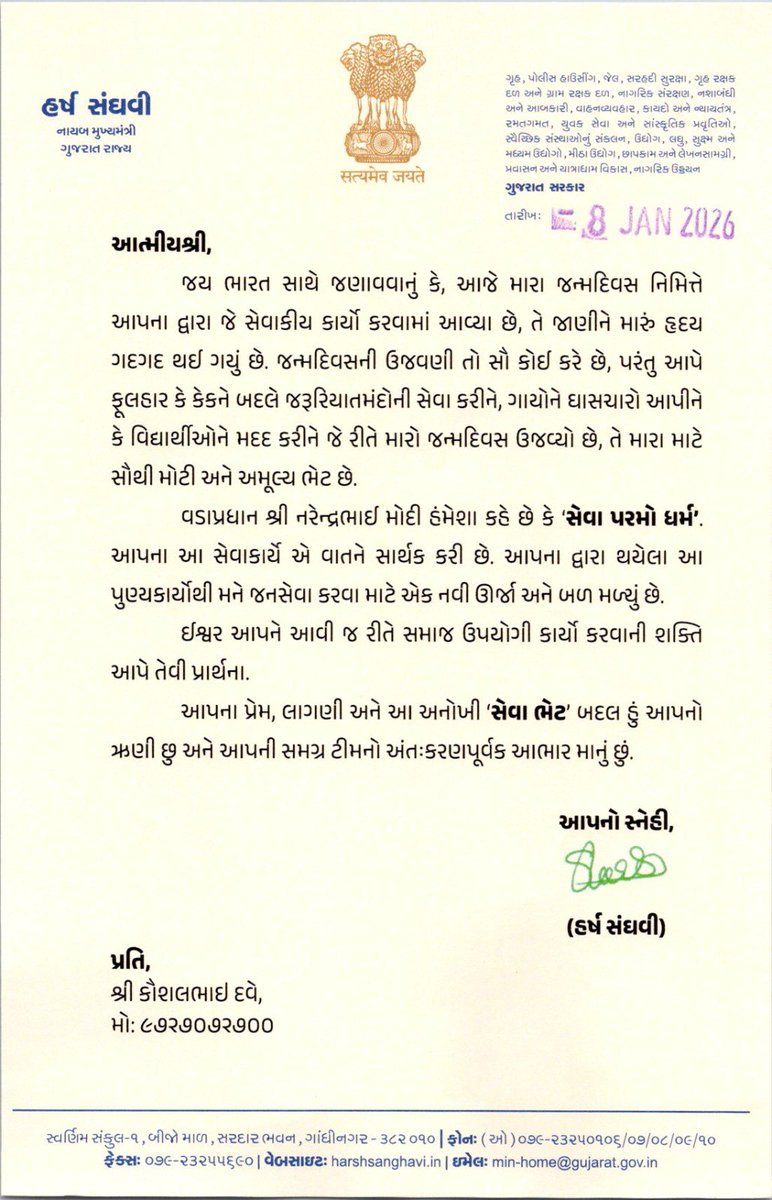 હર્ષ સંઘવી
નાયબ મુખ્યમંત્રી
ગુજરાત રાજ્ય
સત્યમેવ જયતે
ગૃહ, પોલીસ હાઉસીંગ, જેલ, સરહદી સુરક્ષા, ગૃહ રક્ષક
દળ અને ગ્રામ રક્ષક દળ, નાગરિક સંરક્ષણ, નશાબંધી
અને આબકારી, વાહનવ્યવહાર, કાયદો અને ન્યાયતંત્ર,
રમતગમત, યુવક સેવા અને સાંસ્કૃતિક પ્રવૃતિઓ,
સ્વૈચ્છિક સંસ્થાઓનું સંકલન, ઉદ્યોગ, લઘુ, સુક્ષ્મ અને
મધ્યમ ઉદ્યોગો, મીઠા ઉદ્યોગ, છાપકામ અને લેખનસામગ્રી,
પ્રવાસન અને યાત્રાધામ વિકાસ, નાગરિક ઉડ્ડયન
ગુજરાત સરકાર
તારીખઃ 8 JAN 2026
આત્મીયશ્રી,
જય ભારત સાથે જણાવવાનું કે, આજે મારા જન્મદિવસ નિમિત્તે
આપના દ્વારા જે સેવાકીય કાર્યો કરવામાં આવ્યા છે, તે જાણીને મારું હૃદય
ગદગદ થઈ ગયું છે. જન્મદિવસની ઉજવણી તો સૌ કોઈ કરે છે, પરંતુ આપે
ફૂલહાર કે કેકને બદલે જરૂરિયાતમંદોની સેવા કરીને, ગાયોને ઘાસચારો આપીને
કે વિદ્યાર્થીઓને મદદ કરીને જે રીતે મારો જન્મદિવસ ઉજવ્યો છે, તે મારા માટે
સૌથી મોટી અને અમૂલ્ય ભેટ છે.
વડાપ્રધાન શ્રી નરેન્દ્રભાઈ મોદી હંમેશા કહે છે કે ‘સેવા પરમો ધર્મ’.
આપના આ સેવાકાર્યે એ વાતને સાર્થક કરી છે. આપના દ્વારા થયેલા આ
પુણ્યકાર્યોથી મને જનસેવા કરવા માટે એક નવી ઊર્જા અને બળ મળ્યું છે.
ઈશ્વર આપને આવી જ રીતે સમાજ ઉપયોગી કાર્યો કરવાની શક્તિ
આપે તેવી પ્રાર્થના.
આપના પ્રેમ, લાગણી અને આ અનોખી ‘સેવા ભેટ’ બદલ હું આપનો
ઋણી છુ અને આપની સમગ્ર ટીમનો અંતઃકરણપૂર્વક આભાર માનું છું.
આપનો સ્નેહી,
(હર્ષ સંઘવી)
પ્રતિ,
શ્રી કૌશલભાઇ દવે,
મો: ૯૭૨૭૦૭૨૭૦૦
સ્વર્ણિમ સંકુલ-૧, બીજો માળ, સરદાર ભવન, ગાંધીનગર - ૩૮૨ ૦૧૦ | ફોનઃ ( ઓ ) ૦૭૯-૨૩૨૫૦૧૦૬/૦૭/૦૮/૦૯/૧૦
ફેક્સઃ ૦૭૯-૨૩૨૫૫૬૯૦ | વેબસાઇટઃ harshsanghavi.in | ઇમેલઃ min-home@gujarat.gov.in